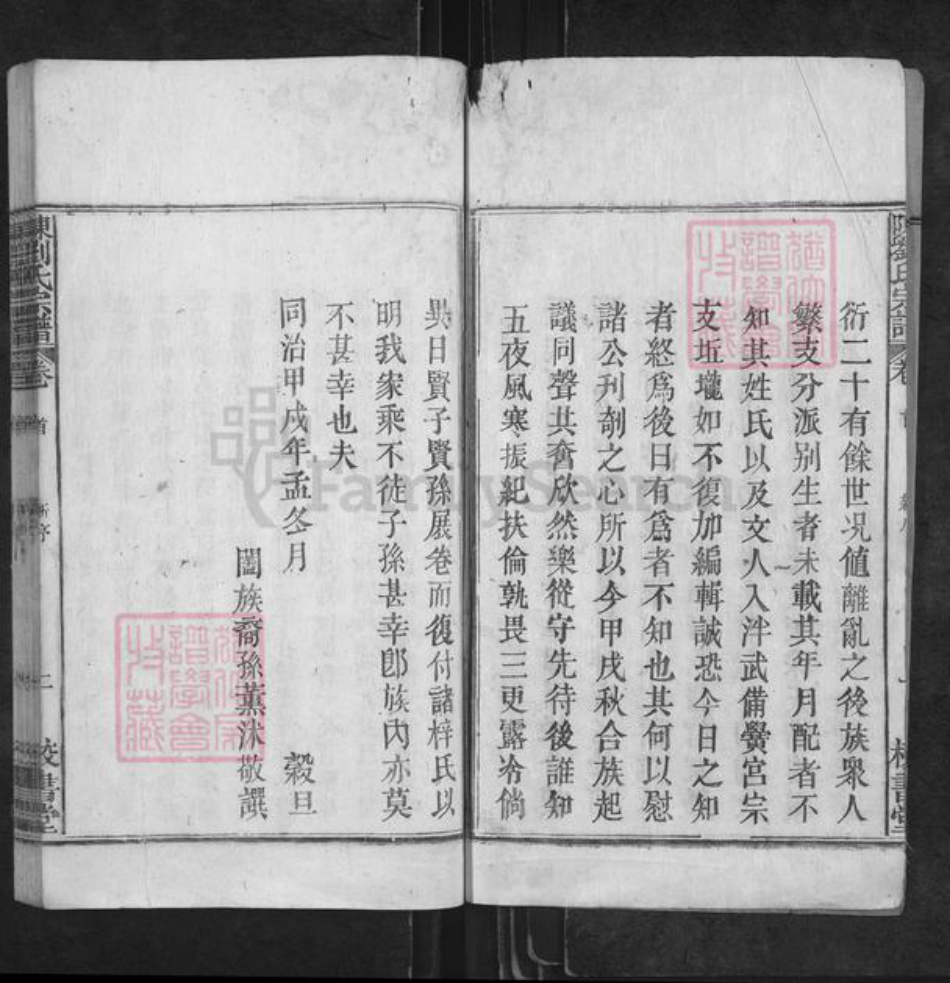 衍二十有餘世况値離亂之後族眾人
繁支分派别生者未載其年月配者不
知其姓氏以及文人入泮武備黌宮宗
支坵壠如不復加編輯誠恐今日之知
者終爲後日有爲者不知也其何以慰
諸公刋剞之心所以今甲戌秋合族起
議同聲共奮欣然樂從守先待後誰知
五夜風寒振紀扶倫孰畏三更露冷倘
異日賢子賢孫展卷而復付諸梓氏以
明我家乘不徒子孫甚幸卽族內亦莫
不甚幸也夫
同治甲戌年孟冬月 穀旦
闔族裔孫薰沐敬譔
劉氏宗譜 卷 首 新序 二 校書堂
FamilySearch